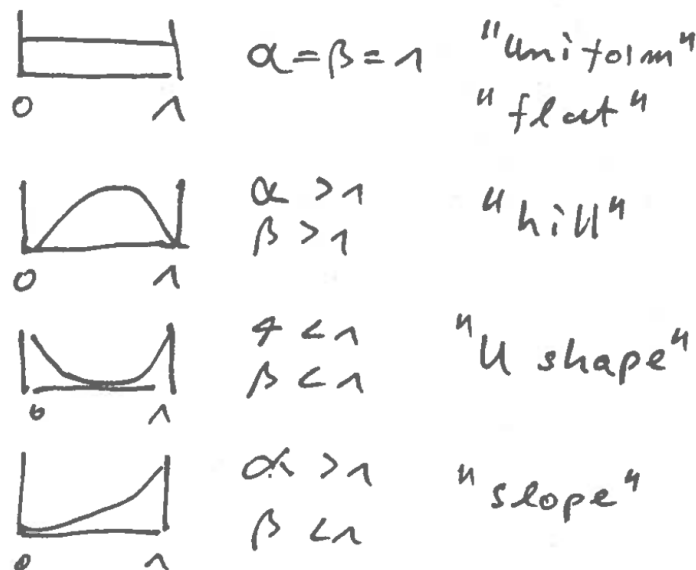 α = β = 1 "uniform"
"flat"
0 1
α > 1
β > 1 "hill"
0 1
α < 1
β < 1 "U shape"
0 1
α > 1 "slope"
β < 1
0 1